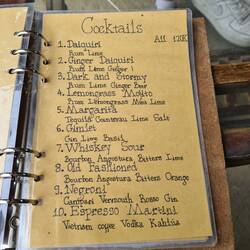 Cocktails
All 12K
1. Daiquiri
Rum Lime
2. Ginger Daiquiri
Rum Lime Ginger
3. Dark and Stormy
Rum Lime Ginger Beer
4. Lemongrass Mojito
Rum Lemongrass Mint Lime
5. Margarita
Tequila Cointreau Lime Salt
6. Gimlet
Gin Lime Basil
7. Whiskey Sour
Bourbon Angostura Bitters Lime
8. Old Fashioned
Bourbon Angostura Bitters Orange
9. Negroni
Campari Vermouth Rosso Gin
10. Espresso Martini
Vietnam Vodka Kahlua